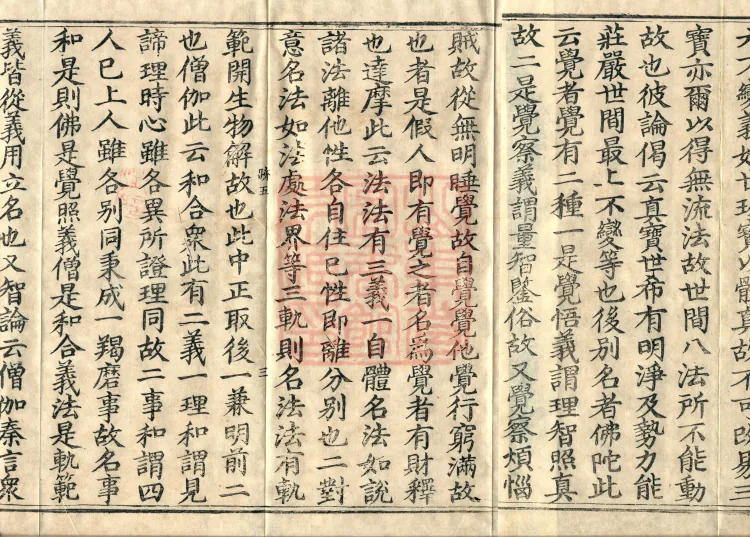 六不變義如世珍寶以體真故不可改易三
寶亦爾以得無流法故世間八法所不能動
故也彼論偈云真寶世希有明淨及勢力能
莊嚴世間最上不變等也後別名者佛陀此
云覺者覺有二種一是覺悟義謂理智照真
故二是覺察義謂量智鑒俗故又覺察煩惱
賊故從無明睡覺故自覺覺他覺行窮滿故
也者是假人即有覺之者名爲覺者有財釋
也達摩此云法法有三義一自體名法如說
諸法離他性各自住已性即離分別也二對
意名法如法處法界等三軌則名法法有軌
五 三
範開生物解故也此中正取後一兼明前二
也僧伽此云和合衆此有二義一理和謂見
諦理時心雖各異所證理同故二事和謂四
人已上人雖各別同秉成一羯磨事故名事
和是則佛是覺照義僧是和合義法是軌範
義皆從義用立名也又智論云僧伽秦言衆